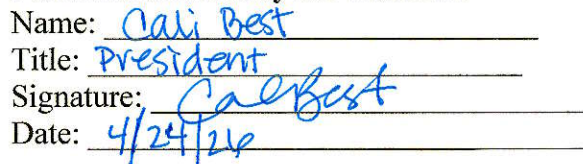 Name: Cali Best
Title: President
Signature: Cali Best
Date: 4/24/26